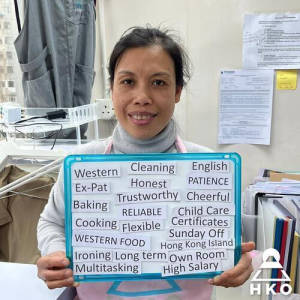 Western Cleaning English
Ex-Pat Honest PATIENCE
Baking Trustworthy Cheerful
RELIABLE Child Care
Cooking Flexible Certificates
WESTERN FOOD Sunday Off
Hong Kong Island
Ironing Long term Own Room
Multitasking High Salary
HKO